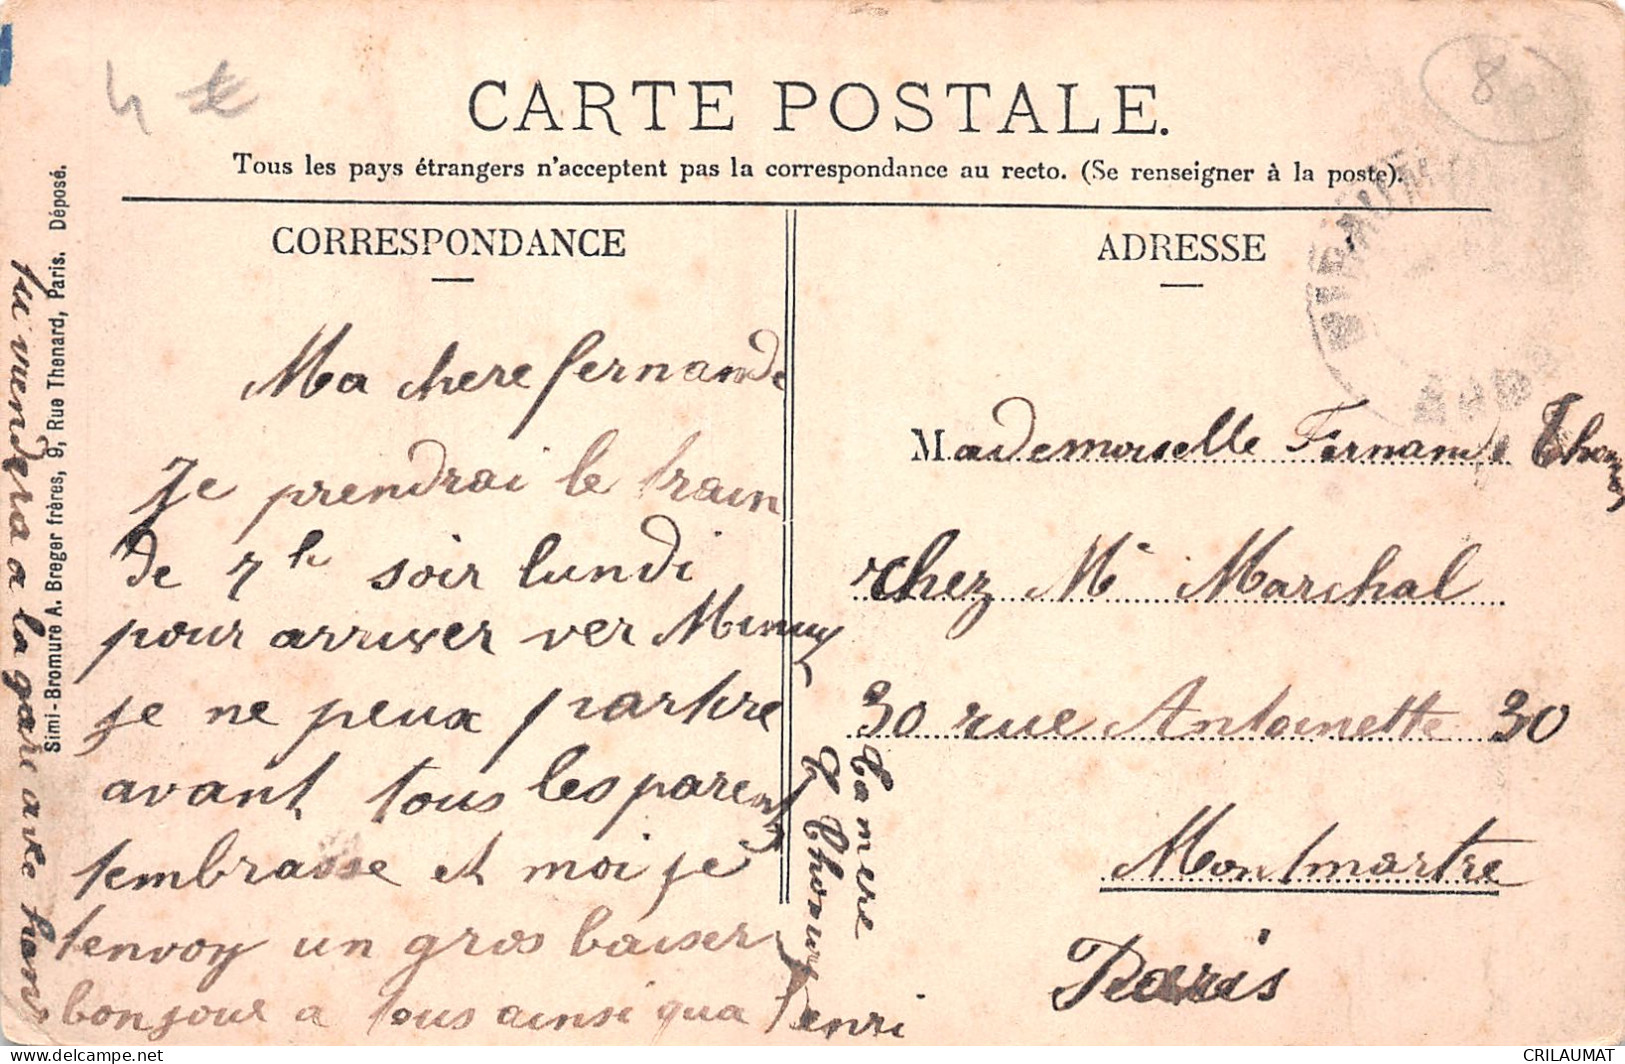 4 €
8
CARTE POSTALE.
Tous les pays étrangers n'acceptent pas la correspondance au recto. (Se renseigner à la poste).
CORRESPONDANCE
Ma chere fernande
Je prendrai le train
de 7h soir lundi
pour arriver ver Minuy
je ne peux partire
avant tous les parent
tembrasse et moi je
tenvoy un gros baiser
bonjour a tous ainsi qua Henri
tu viendra a la gare avec hen
ta mere
Simi-Bromure A. Breger frères, 9, Rue Thenard, Paris. Déposé.
ADRESSE
Mademoiselle Fernande Thomas
chez Mr Marchal
30 rue Antoinette 30
Montmartre
Paris
delcampe.net
CRILAUMAT